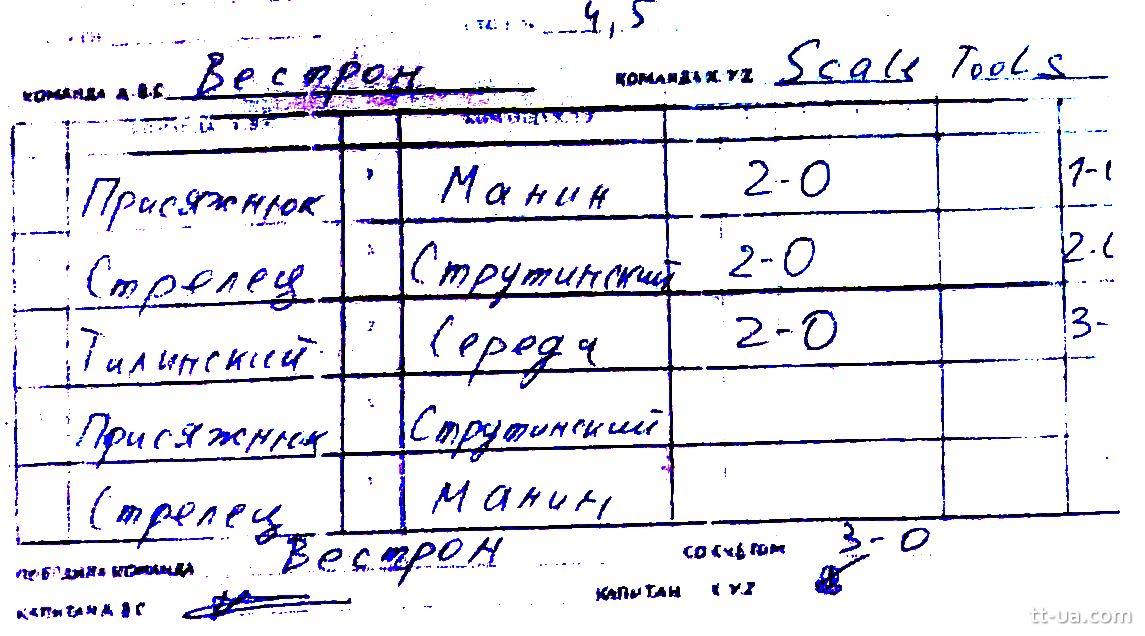 4,5
КОМАНДА А.В.С Вестрон КОМАНДЫ X.Y.Z Scale Tools
Присяжнюк Манин 2-0
Стрелец Струтинский 2-0
Тилинский Середа 2-0
Присяжнюк Струтинский
Стрелец Манин
КОМАНДА Вестрон СО СЧЕТОМ 3-0
КАПИТАН А В С КАПИТАН X Y Z
tt-ua.com